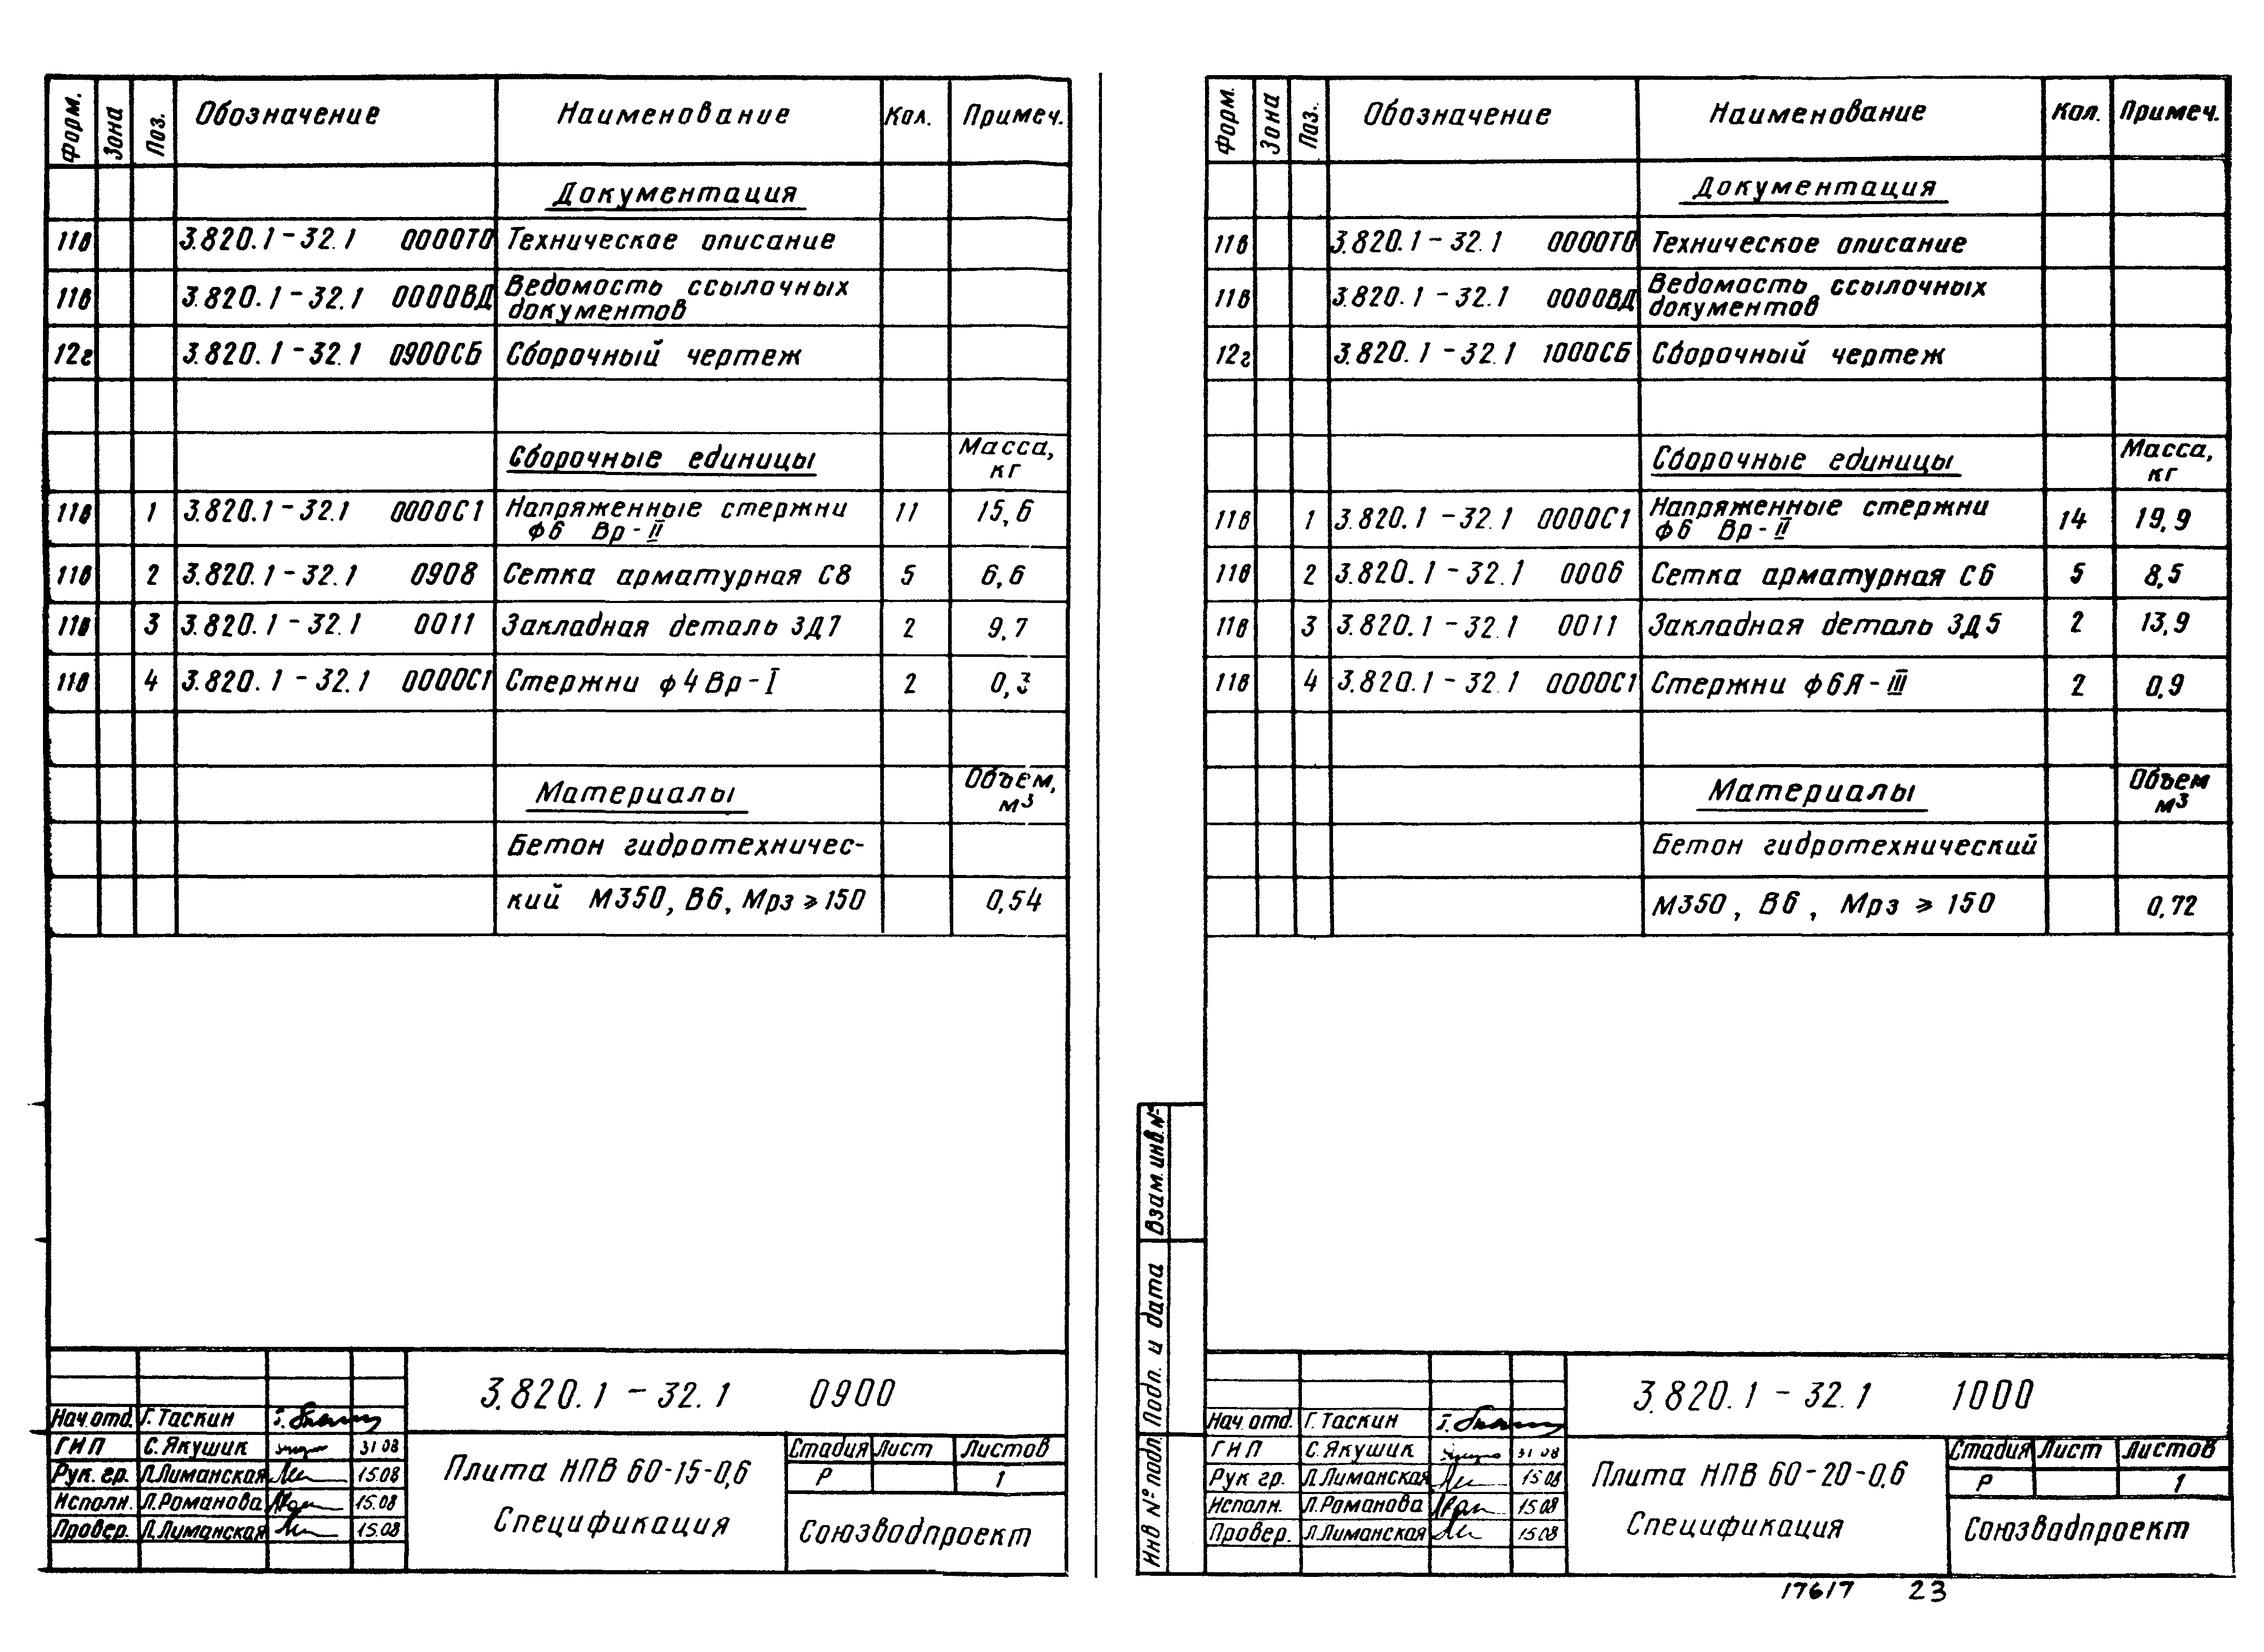 Форм. Зона Поз. Обозначение Наименование Кол. Примеч.
Документация
11в 3.820.1-32.1 0000ТО Техническое описание
11в 3.820.1-32.1 0000ВД Ведомость ссылочных
документов
12г 3.820.1-32.1 0900СБ Сборочный чертеж
Сборочные единицы Масса,
кг
11в 1 3.820.1-32.1 0000С1 Напряженные стержни 11 15,6
ф6 Вр-II
11в 2 3.820.1-32.1 0908 Сетка арматурная С8 5 6,6
11в 3 3.820.1-32.1 0011 Закладная деталь ЗД7 2 9,7
11в 4 3.820.1-32.1 0000С1 Стержни ф4Вр-I 2 0,3
Материалы Объем,
м3
Бетон гидротехничес-
кий М350, В6, Мрз ⩾ 150 0,54
3.820.1-32.1 0900
Нач.отд. Г.Таскин
ГИП С.Якушик 31.08
Рук. гр. Л.Лиманская 15.08
Исполн. Л.Романова 15.08
Провер. Л.Лиманская 15.08
Плита НПВ 60-15-0,6
Спецификация
Стадия Лист Листов
Р 1
Союзводпроект
Форм. Зона Поз. Обозначение Наименование Кол. Примеч.
Документация
11в 3.820.1-32.1 0000ТО Техническое описание
11в 3.820.1-32.1 0000ВД Ведомость ссылочных
документов
12г 3.820.1-32.1 1000СБ Сборочный чертеж
Сборочные единицы Масса,
кг
11в 1 3.820.1-32.1 0000С1 Напряженные стержни 14 19,9
ф6 Вр-II
11в 2 3.820.1-32.1 0006 Сетка арматурная С6 5 8,5
11в 3 3.820.1-32.1 0011 Закладная деталь ЗД5 2 13,9
11в 4 3.820.1-32.1 0000С1 Стержни ф6А-III 2 0,9
Материалы Объем
м3
Бетон гидротехнический
М350, В6, Мрз ⩾ 150 0,72
Взам. инв. №
Подп. и дата
Инв № подл.
3.820.1-32.1 1000
Нач. отд. Г.Таскин
ГИП С.Якушик 31.08
Рук гр. Л.Лиманская 15.08
Исполн. Л.Романова 15.08
Провер. Л.Лиманская 15.08
Плита НПВ 60-20-0,6
Спецификация
Стадия Лист Листов
Р 1
Союзводпроект
17617 23